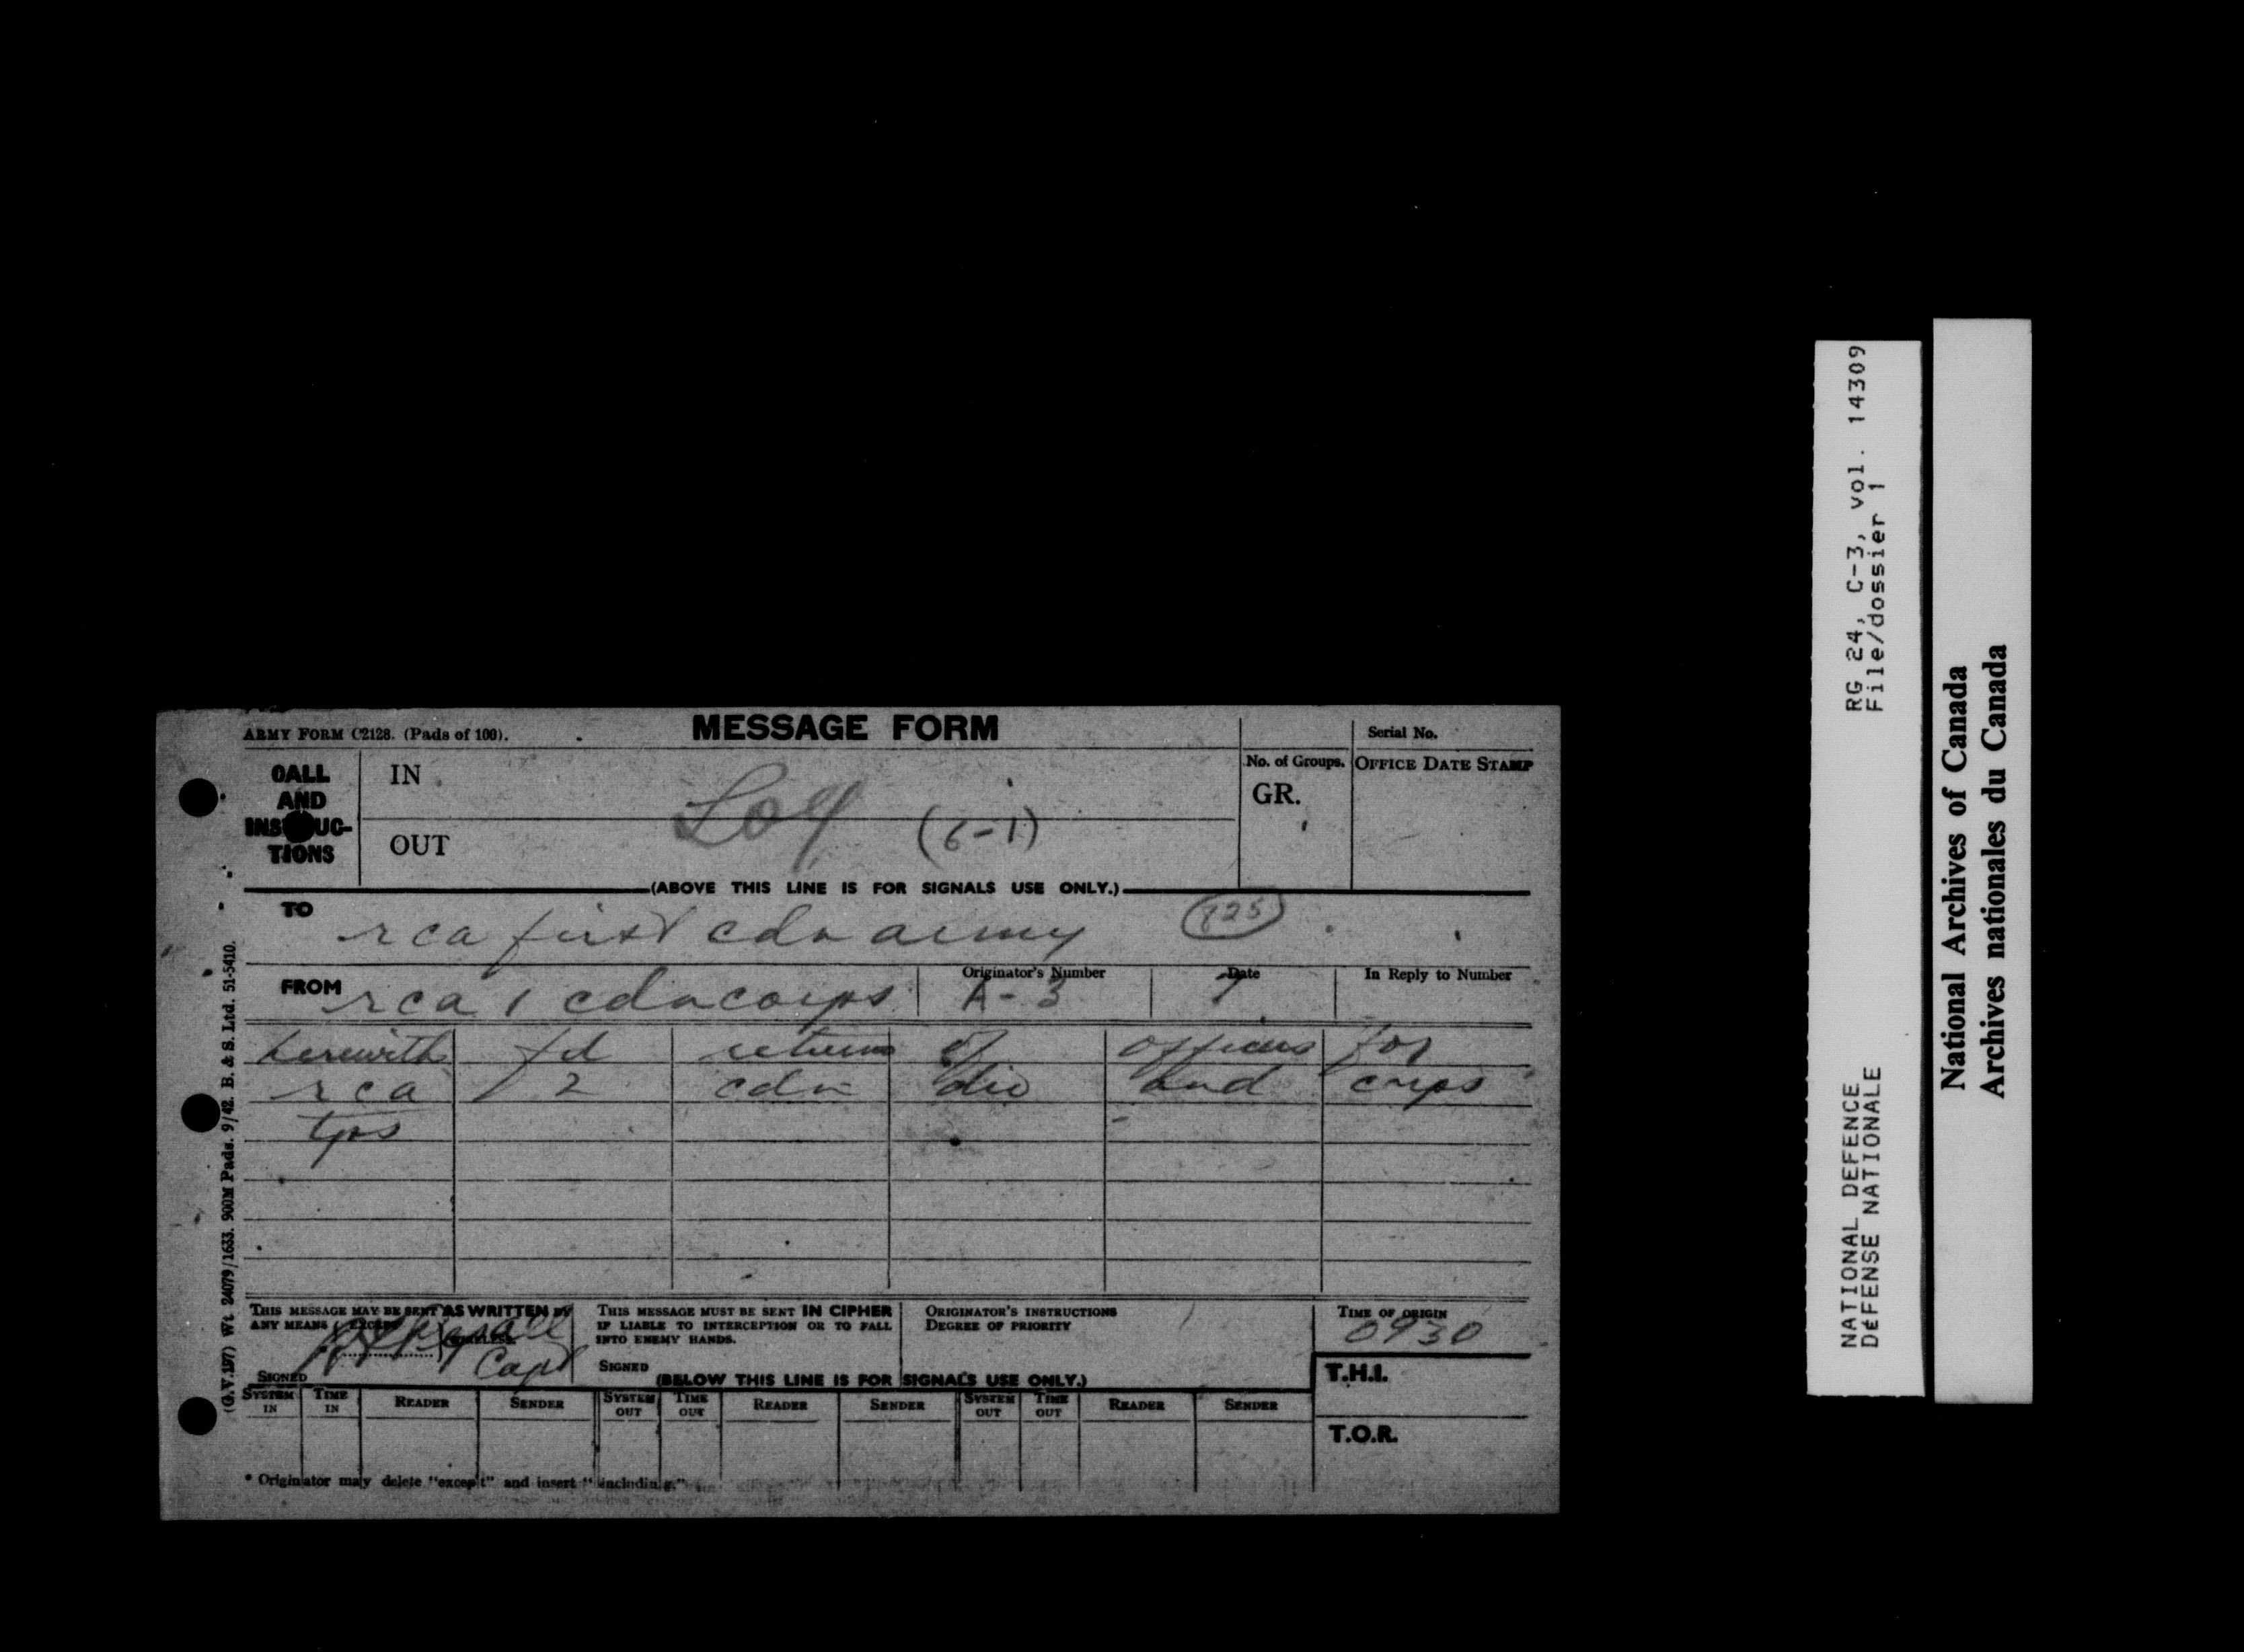 ARMY FORM C2128. (Pads of 100).
MESSAGE FORM
Serial No.
CALL AND INSTRUC-TIONS
IN
OUT
Log (6-1)
No. of Groups.
GR.
OFFICE DATE STAMP
(ABOVE THIS LINE IS FOR SIGNALS USE ONLY.)
TO
rca first cdn army
825
FROM
rca 1 cdn corps
Originator's Number
A-3
Date
7
In Reply to Number
herewith fd returns of officers for
rca 2 cdn div and corps
tps
THIS MESSAGE MAY BE SENT AS WRITTEN BY
ANY MEANS EXCEPT
WIRELESS.
SIGNED
Capt
THIS MESSAGE MUST BE SENT IN CIPHER
IF LIABLE TO INTERCEPTION OR TO FALL
INTO ENEMY HANDS.
SIGNED
ORIGINATOR'S INSTRUCTIONS
DEGREE OF PRIORITY
TIME OF ORIGIN
0930
T.H.I.
T.O.R.
(BELOW THIS LINE IS FOR SIGNALS USE ONLY.)
SYSTEM IN TIME IN READER SENDER SYSTEM OUT TIME OUT READER SENDER SYSTEM OUT TIME OUT READER SENDER
* Originator may delete "except" and insert "including."
(G.V.197) Wt 24079/1633. 900M Pads. 9/42. B. & S. Ltd. 51-5410.
RG 24, C-3, vol. 14309
File/dossier 1
NATIONAL DEFENCE
DÉFENSE NATIONALE
National Archives of Canada
Archives nationales du Canada